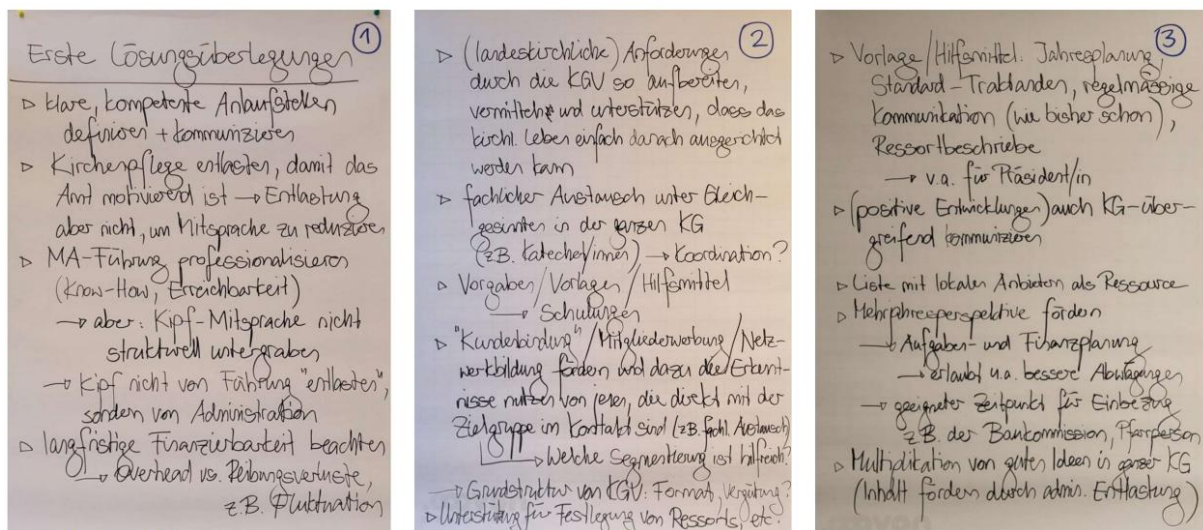 1
Erste Lösungsüberlegungen
▷ klare, kompetente Anlaufstellen
definieren + kommunizieren
▷ Kirchenpflege entlasten, damit das
Amt motivierend ist → Entlastung
aber nicht, um Mitsprache zu reduzieren
▷ MA-Führung professionalisieren
(Know-How, Erreichbarkeit)
→ aber: Kipf-Mitsprache nicht
strukturell untergraben
→ Kipf nicht von Führung "entlasten",
sondern von Administration
▷ langfristige Finanzierbarkeit beachten
→ Overhead vs. Reibungsverluste,
z.B. Fluktuation
2
▷ (landeskirchliche) Anforderungen
durch die KGV so aufbereiten,
vermitteln und unterstützen, dass das
kirchl. Leben einfach danach ausgerichtet
werden kann
▷ fachlicher Austausch unter Gleich-
gesinnten in der ganzen KG
(z.B. Katechet/innen) → Koordination?
▷ Vorgaben / Vorlagen / Hilfsmittel
→ Schulungen
▷ "Kundenbindung" / Mitgliederwerbung / Netz-
werkbildung fördern und dazu die Erkennt-
nisse nutzen von jenen, die direkt mit der
Zielgruppe im Kontakt sind (z.B. fachl. Austausch)
→ Welche Segmentierung ist hilfreich?
→ Grundstruktur von KGV: Format, Vergütung?
▷ Unterstützung für Festlegung von Ressorts, etc.
3
▷ Vorlage / Hilfsmittel: Jahresplanung,
Standard-Traktanden, regelmässige
Kommunikation (wie bisher schon),
Ressortbeschriebe
→ v.a. für Präsident/in
▷ (positive Entwicklungen) auch KG-über-
greifend kommunizieren
▷ Liste mit lokalen Anbietern als Ressource
▷ Mehrjahresperspektive fördern
→ Aufgaben- und Finanzplanung
→ erlaubt u.a. bessere Abwägungen
→ geeigneter Zeitpunkt für Einbezug
z.B. der Baukommission, Pfarrperson
▷ Multiplikation von guten Ideen in ganzer KG
(Inhalt fördern durch admin. Entlastung)